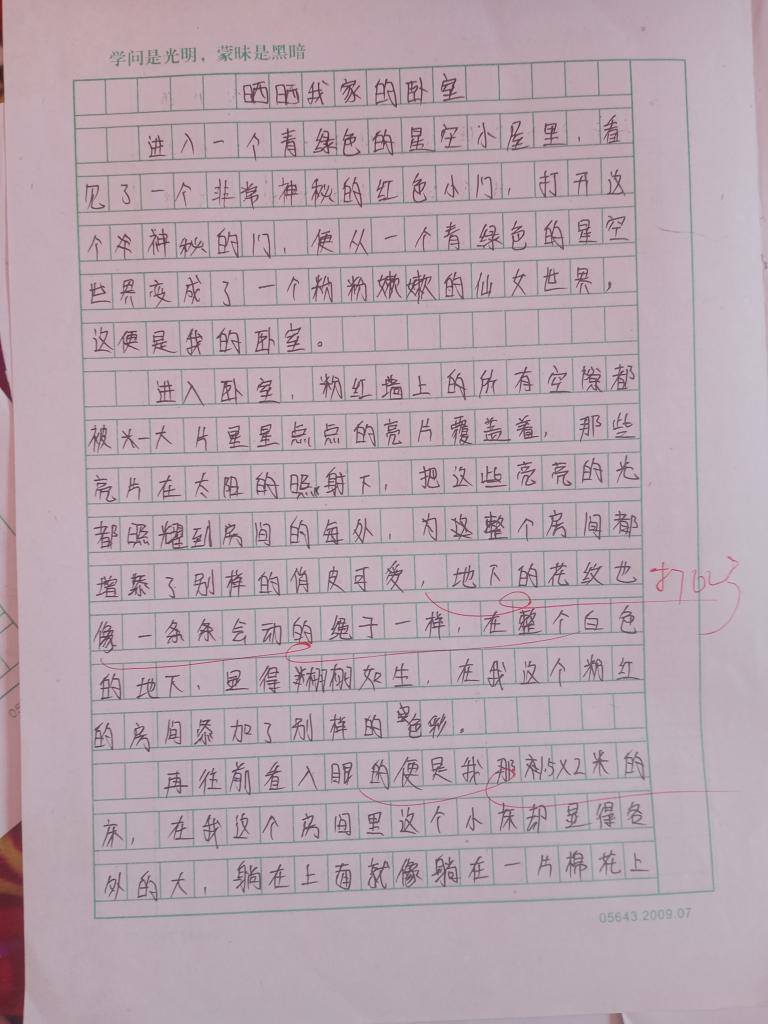 学问是光明，蒙昧是黑暗
晒晒我家的卧室
进入一个青绿色的星空小屋里，看
见了一个非常神秘的红色小门，打开这
个神秘的门，便从一个青绿色的星空
世界变成了一个粉粉嫩嫩的仙女世界，
这便是我的卧室。
进入卧室，粉红墙上的所有空隙都
被一大片星星点点的亮片覆盖着，那些
亮片在太阳的照射下，把这些亮亮的光
都照耀到房间的每处，为这整个房间都
增添了别样的俏皮可爱，地下的花纹也
像一条条会动的绳子一样，在整个白色
的地下，显得栩栩如生，在我这个粉红
的房间添加了别样的色彩。
再往前看入眼的便是我那1.5×2米的
床，在我这个房间里这个小床却显得各
外的大，躺在上面就像躺在一片棉花上
05643.2009.07